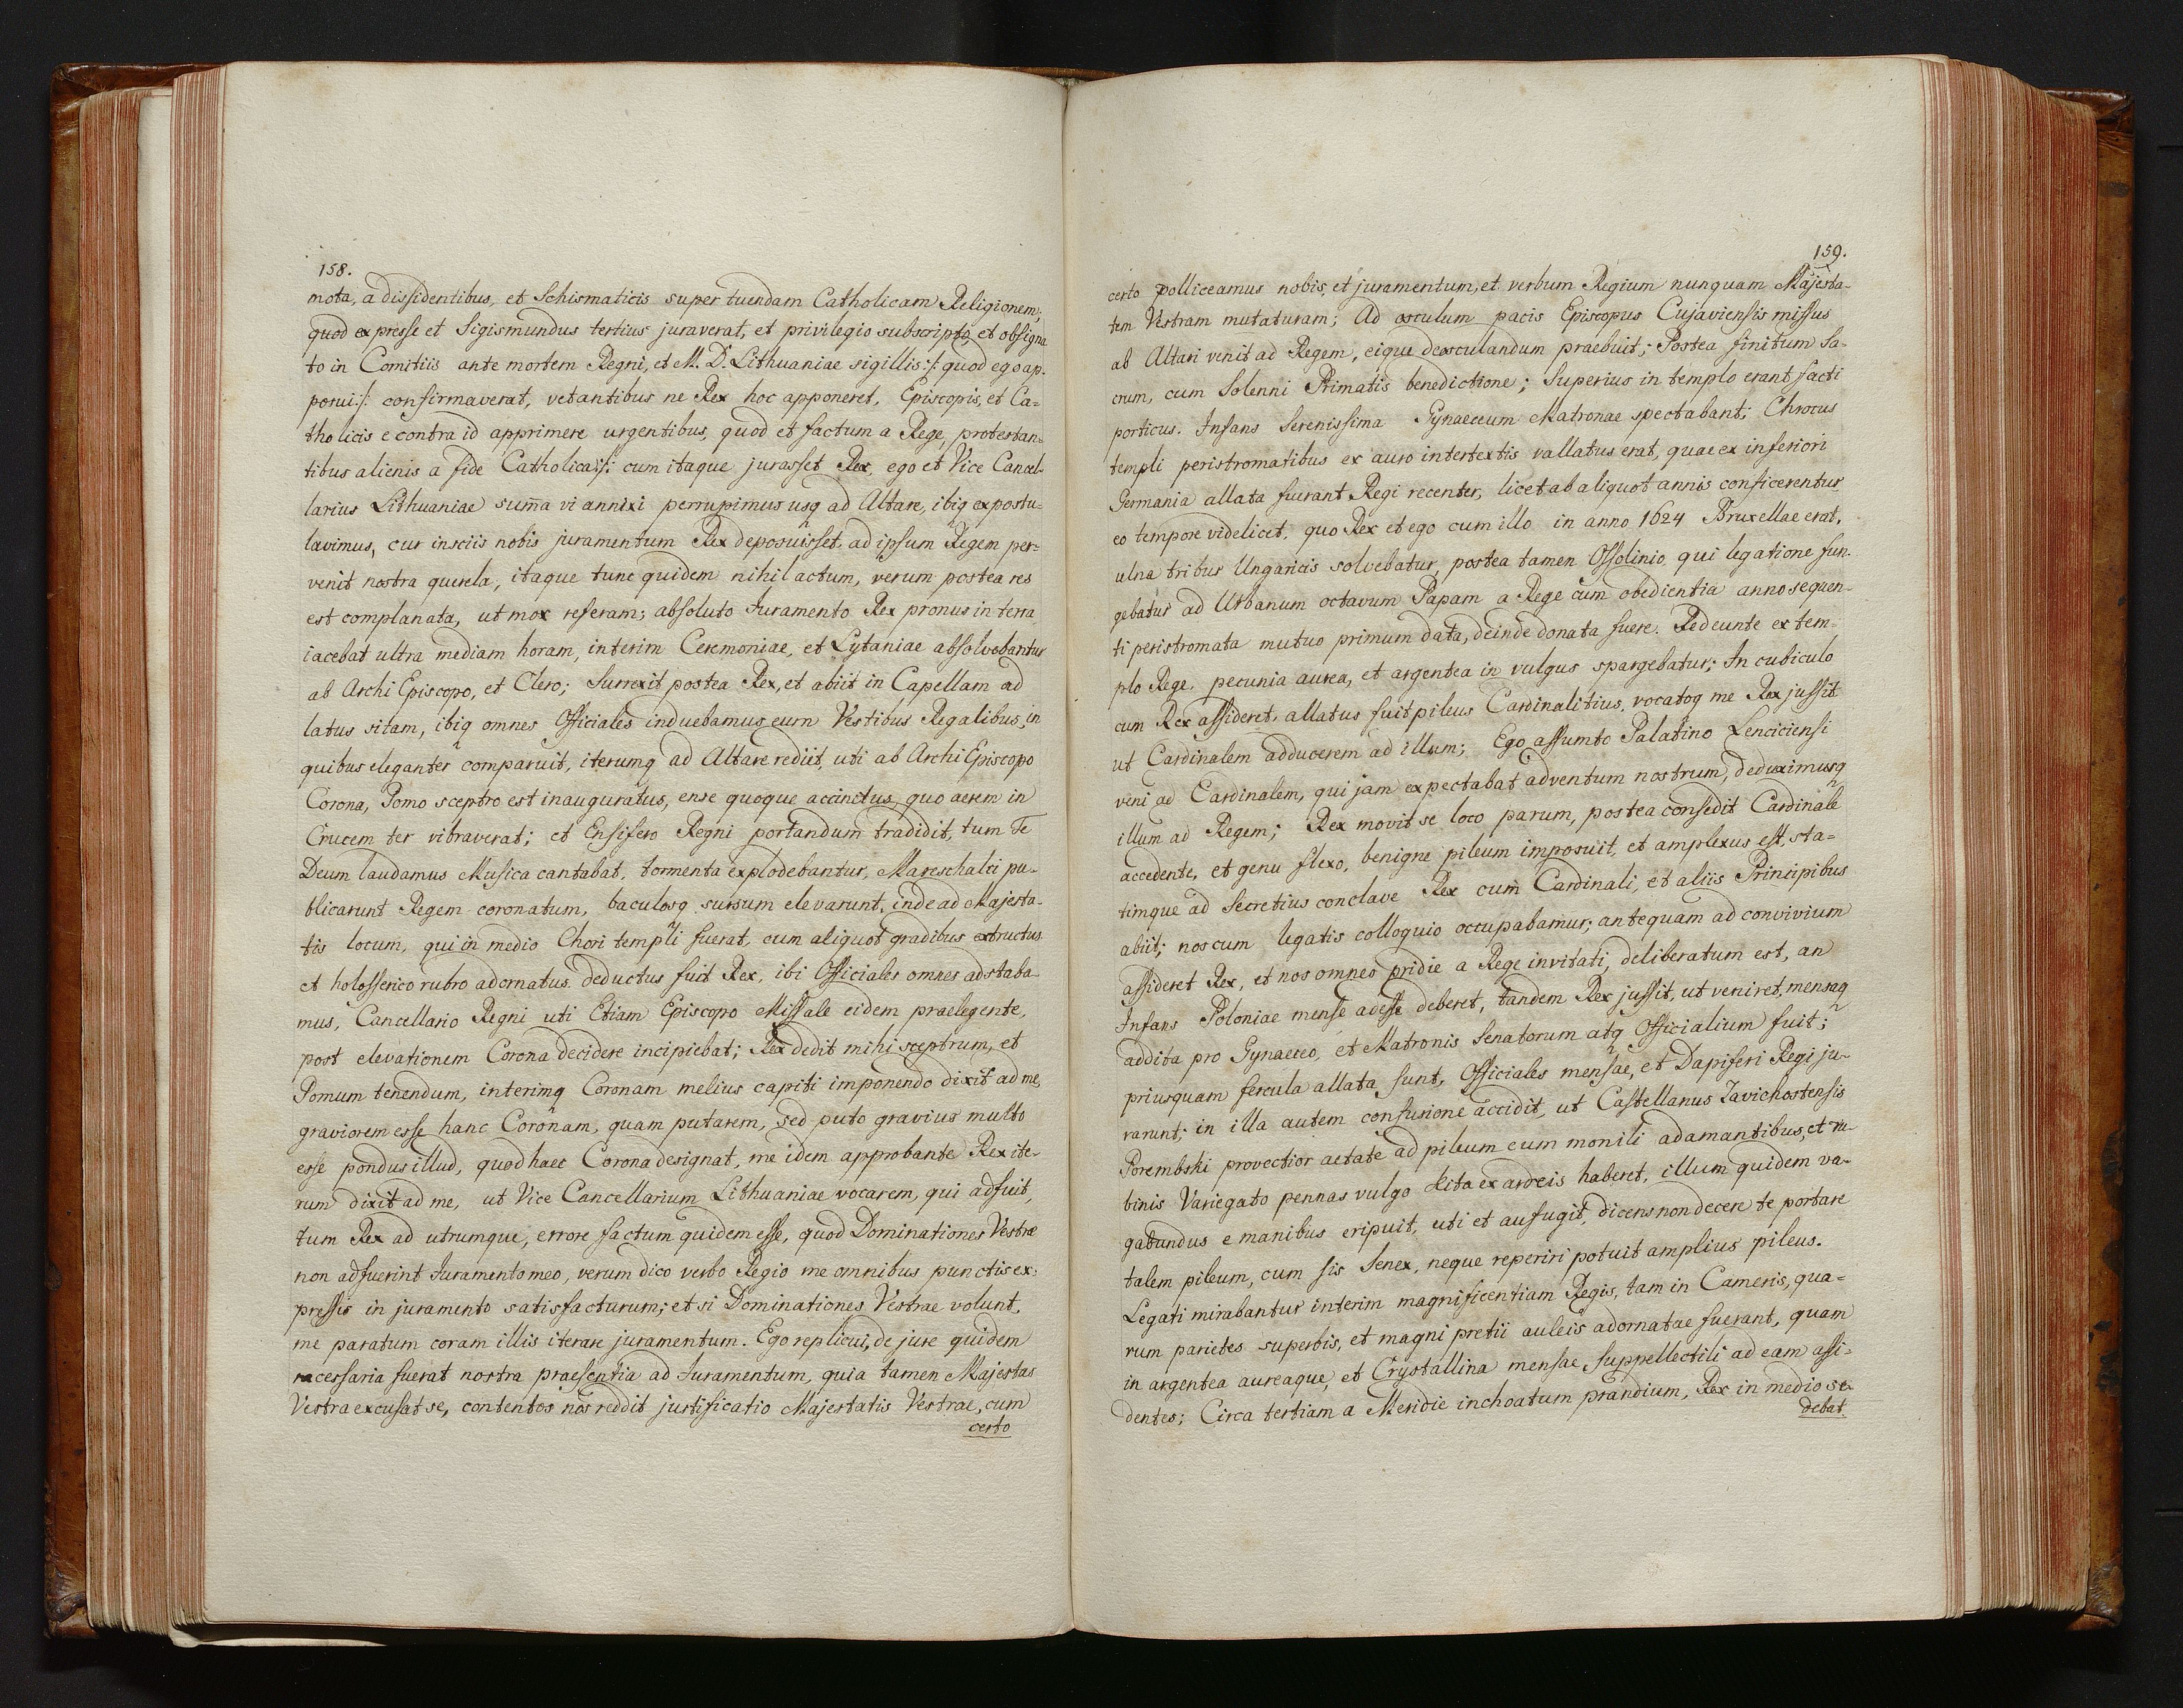 158.
mota, a dissidentibus, et Schismaticis super tuendam Catholicam Religionem;
quod expresse et Sigismundus tertius juraverat, et privilegio subscripto, et obsigna
to in Comitiis ante mortem Regni, et M. D. Lithuaniae sigillis :/: quod ego ap-
posui :/: confirmaverat, vetantibus ne Rex hoc apponeret, Episcopis, et Ca=
tholicis e contra id apprimere urgentibus, quod et factum a Rege, protestan=
tibus alienis a fide Catholica :/: cum itaque jurasset Rex, ego et Vice Cancel-
larius Lithuaniae sum̄a vi annixi perrupimus usq ad Altare, ibiq expostu=
lavimus, cur insciis nobis juramentum Rex deposuisset, ad ipsum Regem per=
venit nostra querela, itaque tunc quidem nihil actum, verum postea res
est complanata, ut mox referam; absoluto Juramento Rex pronus in terra
iacebat ultra mediam horam, interim Ceremoniae, et Lytaniae absolvebantur
ab Archi Episcopo, et Clero; Surrexit postea Rex, et abiit in Capellam ad
latus sitam, ibiq omnes Officiales induebamus eum Vestibus Regalibus, in
quibus eleganter comparuit, iterumq ad Altare rediit, uti ab Archi Episcopo
Corona, Pomo sceptro est inauguratus, ense quoque accinctus, quo aerem in
Crucem ter vibraverat; et Ensifero Regni portandum tradidit, tum Te
Deum laudamus Musica cantabat, tormenta explodebantur, Mareschalci pu-
blicarunt Regem coronatum, baculosq sursum elevarunt, inde ad Majesta-
tis locum, qui in medio Chori templi fuerat, cum aliquot gradibus extructus
et holosserico rubro adornatus. deductus fuit Rex, ibi Officiales omnes adstaba-
mus, Cancellario Regni uti Etiam Episcopo Missale eidem praelegente,
post elevationem Corona decidere incipiebat; Rex dedit mihi sceptrum, et
Pomum tenendum, interimq Coronam melius capiti imponendo dixit ad me,
graviorem esse hanc Coronam, quam putarem, sed puto gravius multo
esse pondus illud, quod haec Corona designat, me idem approbante Rex ite-
rum dixit ad me, ut Vice Cancellarium Lithuaniae vocarem, qui adfuit,
tum Rex ad utrumque, errore factum quidem esse, quod Dominationes Vestrae
non adfuerint Juramento meo, verum dico verbo Regio me omnibus punctis ex=
pressis in juramento satisfacturum; et si Dominationes Vestrae volunt,
me paratum coram illis iterare juramentum. Ego replicui, de jure quidem
necessaria fuerat nostra praesentia ad Juramentum, quia tamen Majestas
Vestra excusat se, contentos nos reddit justificatio Majestatis Vestrae, cum
certo
159.
certo polliceamus nobis, et juramentum, et verbum Regium nunquam Majesta-
tem Vestram mutaturam; Ad osculum pacis Episcopus Cujaviensis missus
ab Altari venit ad Regem, eique deosculandum praebuit; Postea finitum Sa-
crum, cum Solenni Primatis benedictione; Superius in templo erant facti
porticus. Infans Serenissima Gynaeceum Matronae spectabant; Chorus
templi peristromatibus ex auro intertextis vallatus erat, quae ex inferiori
Germania allata fuerant Regi recenter, licet ab aliquot annis conficerentur
eo tempore videlicet, quo Rex et ego cum illo in anno 1624 Bruxellae erat,
ulna tribus Ungaricis solvebatur, postea tamen Ossolinio, qui legatione fun-
gebatur ad Urbanum octavum Papam a Rege cum obedientia anno sequen-
ti peristromata mutuo primum data, deinde donata fuere. Redeunte ex tem-
plo Rege, pecunia aurea, et argentea in vulgus spargebatur; In cubiculo
cum Rex assideret, allatus fuit pileus Cardinalitius, vocatoq me Rex jussit
ut Cardinalem adducerem ad illum; Ego assumto Palatino Lenciciensi
veni ad Cardinalem, qui jam expectabat adventum nostrum, deduximusq
illum ad Regem; Rex movit se loco parum, postea consedit Cardinale
accedente, et genu flexo, benigne pileum imposuit, et amplexus est, sta=
timque ad Secretius conclave Rex cum Cardinali, et aliis Principibus
abiit; nos cum legatis colloquio occupabamur; antequam ad convivium
assideret Rex, et nos omneo pridie a Rege invitati, deliberatum est, an
Infans Poloniae mense adesse deberet, tandem Rex jussit, ut veniret, mensaq
addita pro Gynaeceo, et Matronis Senatorum atq Officialium fuit;
priusquam fercula allata sunt, Officiales mensae, et Dapiferi Regi ju-
rarunt; in illa autem confusione accidit, ut Castellanus Zavichostensis
Porembski provectior aetate ad pileum cum monili adamantibus, et ru-
binis Variegato pennas vulgo kita ex ardeis haberet, illum quidem va-
gabundus e manibus eripuit, uti et aufugit, dicens non decere te portare
talem pileum, cum sis Senex, neque reperiri potuit amplius pileus.
Legati mirabantur interim magnificentiam Regis, tam in Cameris, qua=
rum parietes superbis, et magni pretii auleis adornatae fuerant, quam
in argentea aureaque, et Crystallina mensae Suppellectili ad eam assi-
dentes; Circa tertiam a Meridie inchoatum prandium, Rex in medio se-
debat